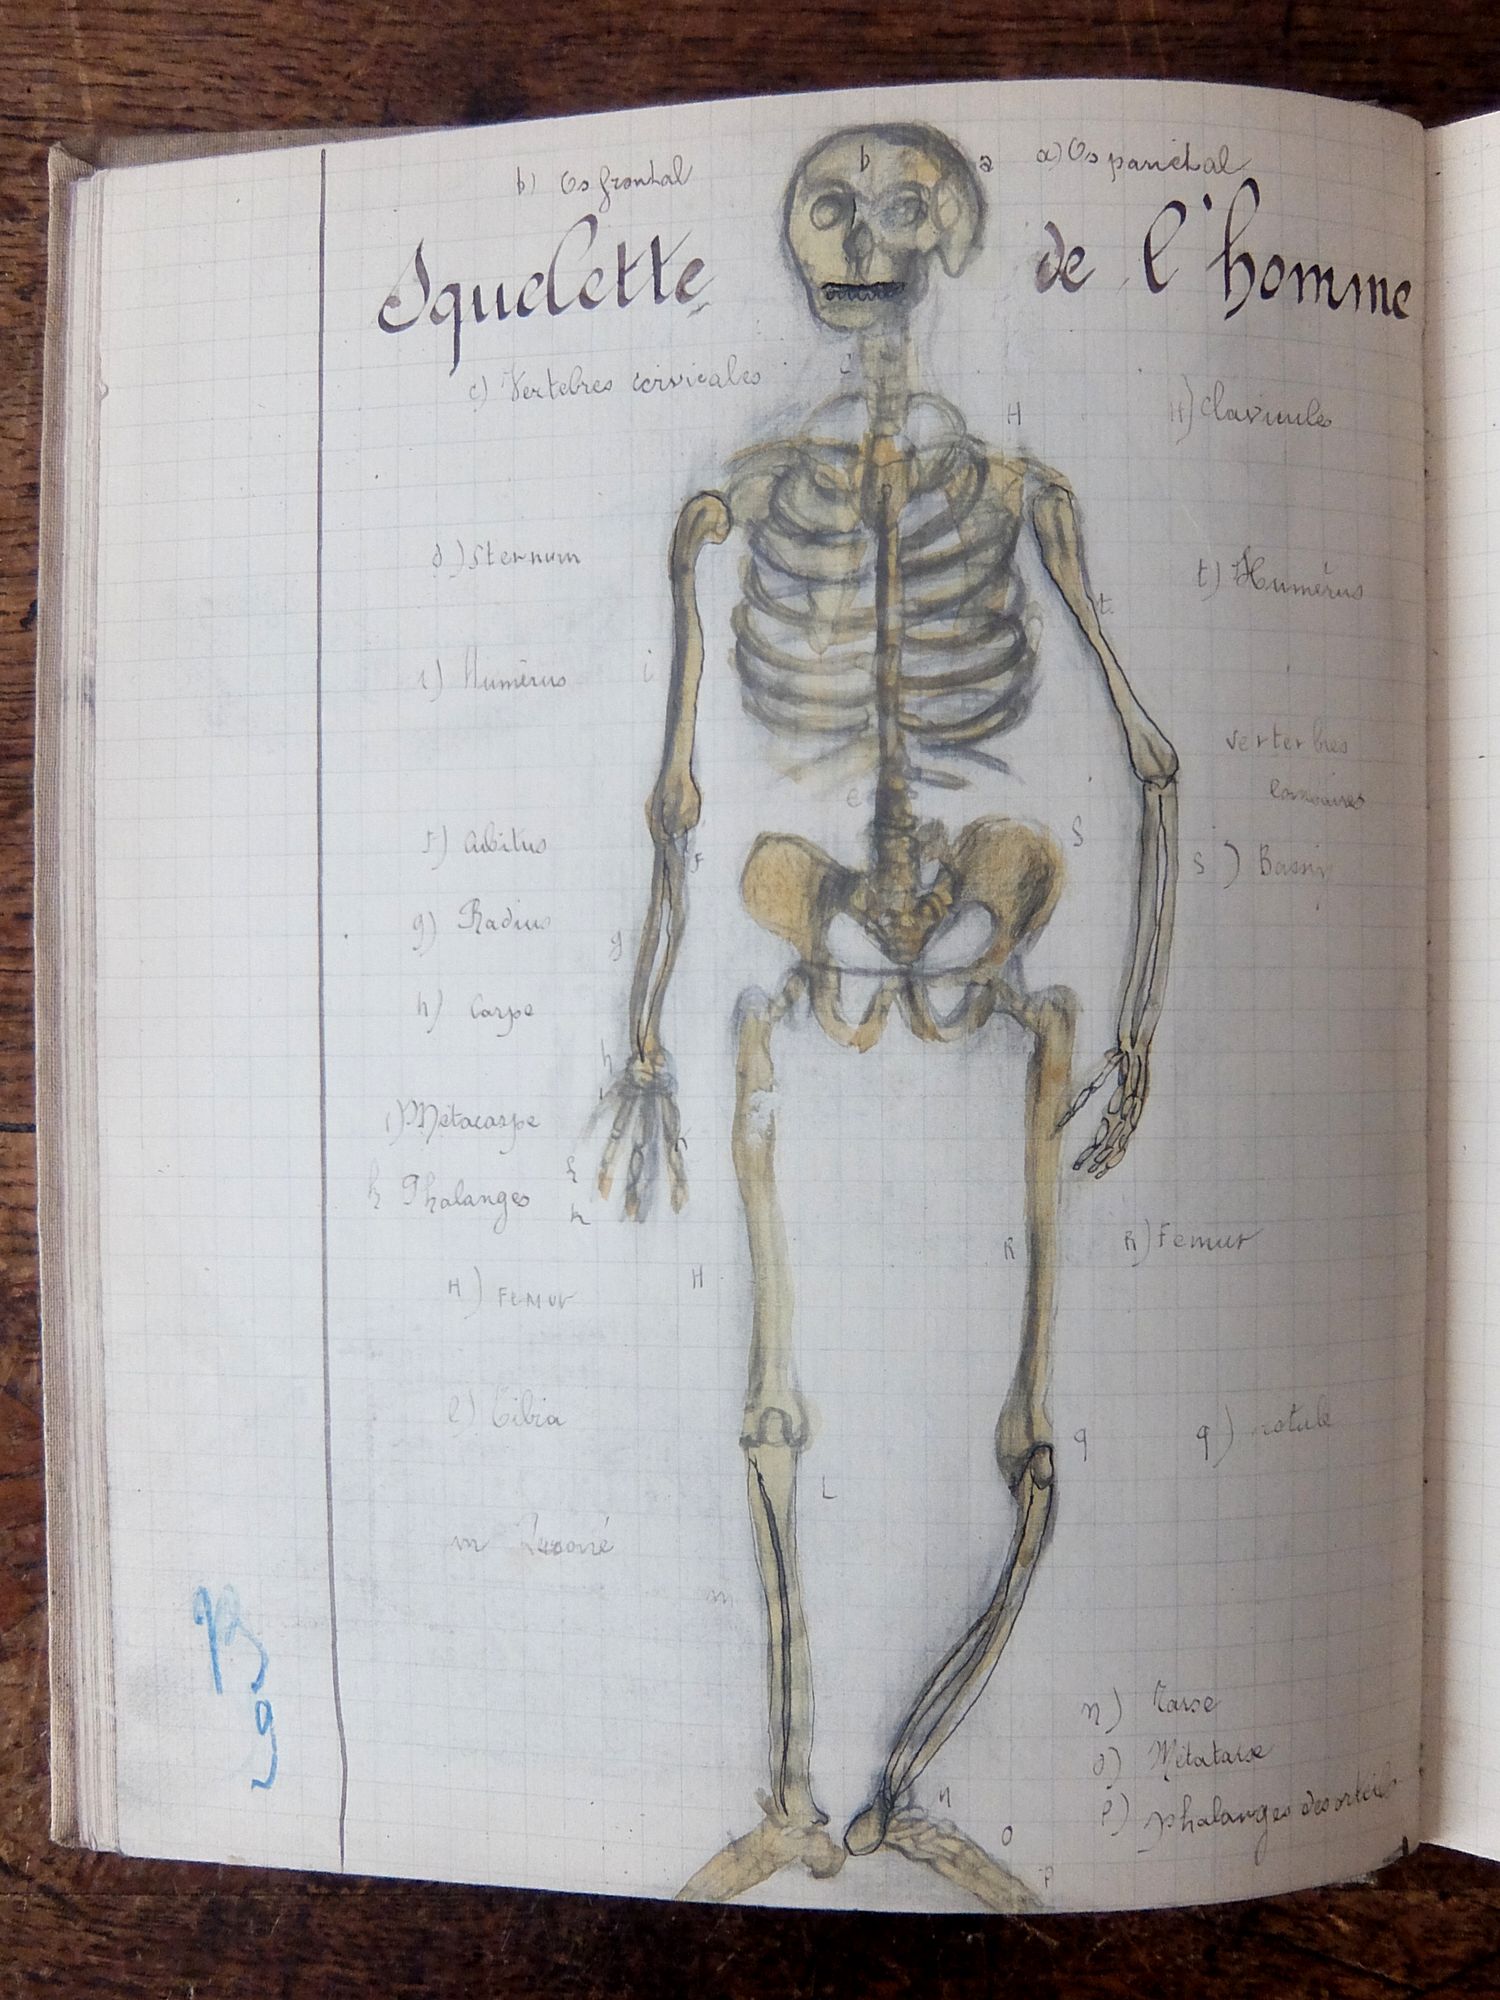 b) Os frontal
b
a
a) Os pariétal
Squelette de l'homme
c) Vertebres cervicales
c
H
H) Clavicules
d) Sternum
t) Humérus
t
i) Humérus
i
verterbres
lombaires
e
f) Cubitus
f
S
S) Bassin
g) Radius
g
h) Carpe
h
i) Métacarpe
k Phalanges
k
R
R) Femur
H) Femur
H
l) Tibia
q
q) rotule
L
m
m
B
9
n) Tarse
o) Métatarse
p) phalanges des orteils
n
o
p